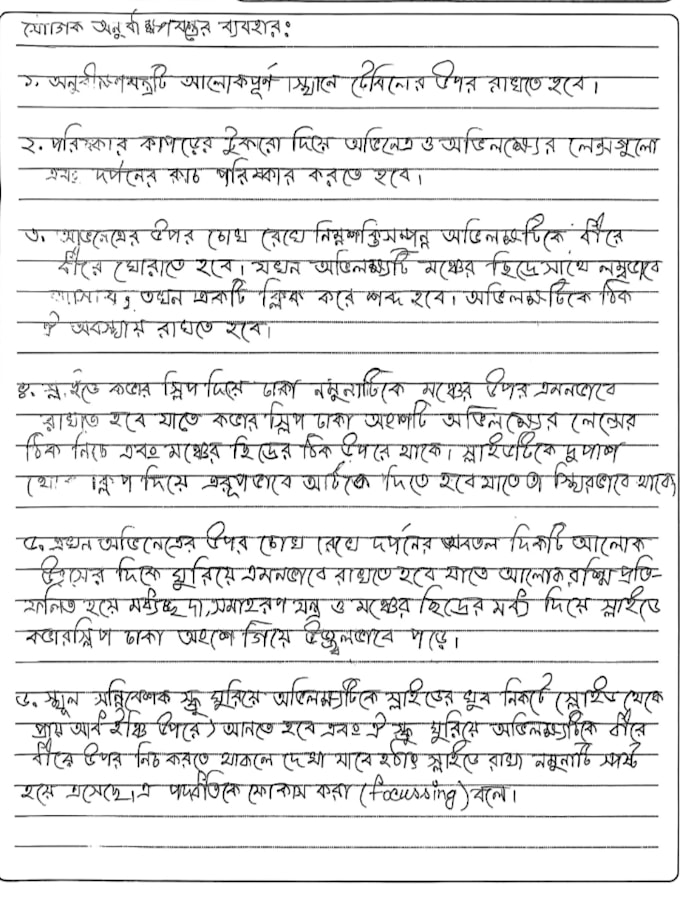 যৌগিক অনুবীক্ষণযন্ত্রের ব্যবহার:
১. অনুবীক্ষণযন্ত্রটি আলোকপূর্ণ স্থানে টেবিলের উপর রাখতে হবে।
২. পরিষ্কার কাপড়ের টুকরো দিয়ে অভিনেত্র ও অভিলক্ষ্যের লেন্সগুলো
এবং দর্পনের কাচ পরিষ্কার করতে হবে।
৩. অভিনেত্রের উপর চোখ রেখে নিম্নশক্তিসম্পন্ন অভিলক্ষটিকে ধীরে
ধীরে ঘোরাতে হবে। যখন অভিলক্ষ্যটি মঞ্চের ছিদ্রেসাথে লম্বভাবে
আসবে, তখন একটি ক্লিক করে শব্দ হবে। অভিলক্ষটিকে ঠিক
ঐ অবস্থায় রাখতে হবে।
৪. স্লাইডে কভার স্লিপ দিয়ে ঢাকা নমুনাটিকে মঞ্চের উপর এমনভাবে
রাখতে হবে যাতে কভার স্লিপ ঢাকা অংশটি অভিলক্ষ্যের লেন্সের
ঠিক নিচে এবং মঞ্চের ছিদ্রের ঠিক উপরে থাকে। স্লাইডটিকে দুপাশ
ক্লিপ দিয়ে এরূপভাবে আটকে দিতে হবে যাতে তা স্থিরভাবে থাকে।
৫. এখন অভিনেত্রের উপর চোখ রেখে দর্পনের অবতল দিকটি আলোক
উৎসের দিকে ঘুরিয়ে এমনভাবে রাখতে হবে যাতে আলোকরশ্মি প্রতি-
ফলিত হয়ে মধ্যচ্ছদা, সমাহরণ যন্ত্র ও মঞ্চের ছিদ্রের মধ্য দিয়ে স্লাইডে
কভারস্লিপ ঢাকা অংশে গিয়ে উজ্জ্বলভাবে পড়ে।
৬. স্থুল সন্নিবেশক স্ক্রু ঘুরিয়ে অভিলক্ষ্যটিকে স্লাইডের খুব নিকটে (স্লাইড থেকে
প্রায় আধ ইঞ্চি উপরে) আনতে হবে এবং ঐ স্ক্রু ঘুরিয়ে অভিলক্ষ্যটিকে ধীরে
ধীরে উপর নিচ করতে থাকলে দেখা যাবে হঠাৎ স্লাইডে রাখা নমুনাটি স্পষ্ট
হয়ে এসেছে। এ পদ্ধতিকে ফোকাস করা (focussing) বলে।